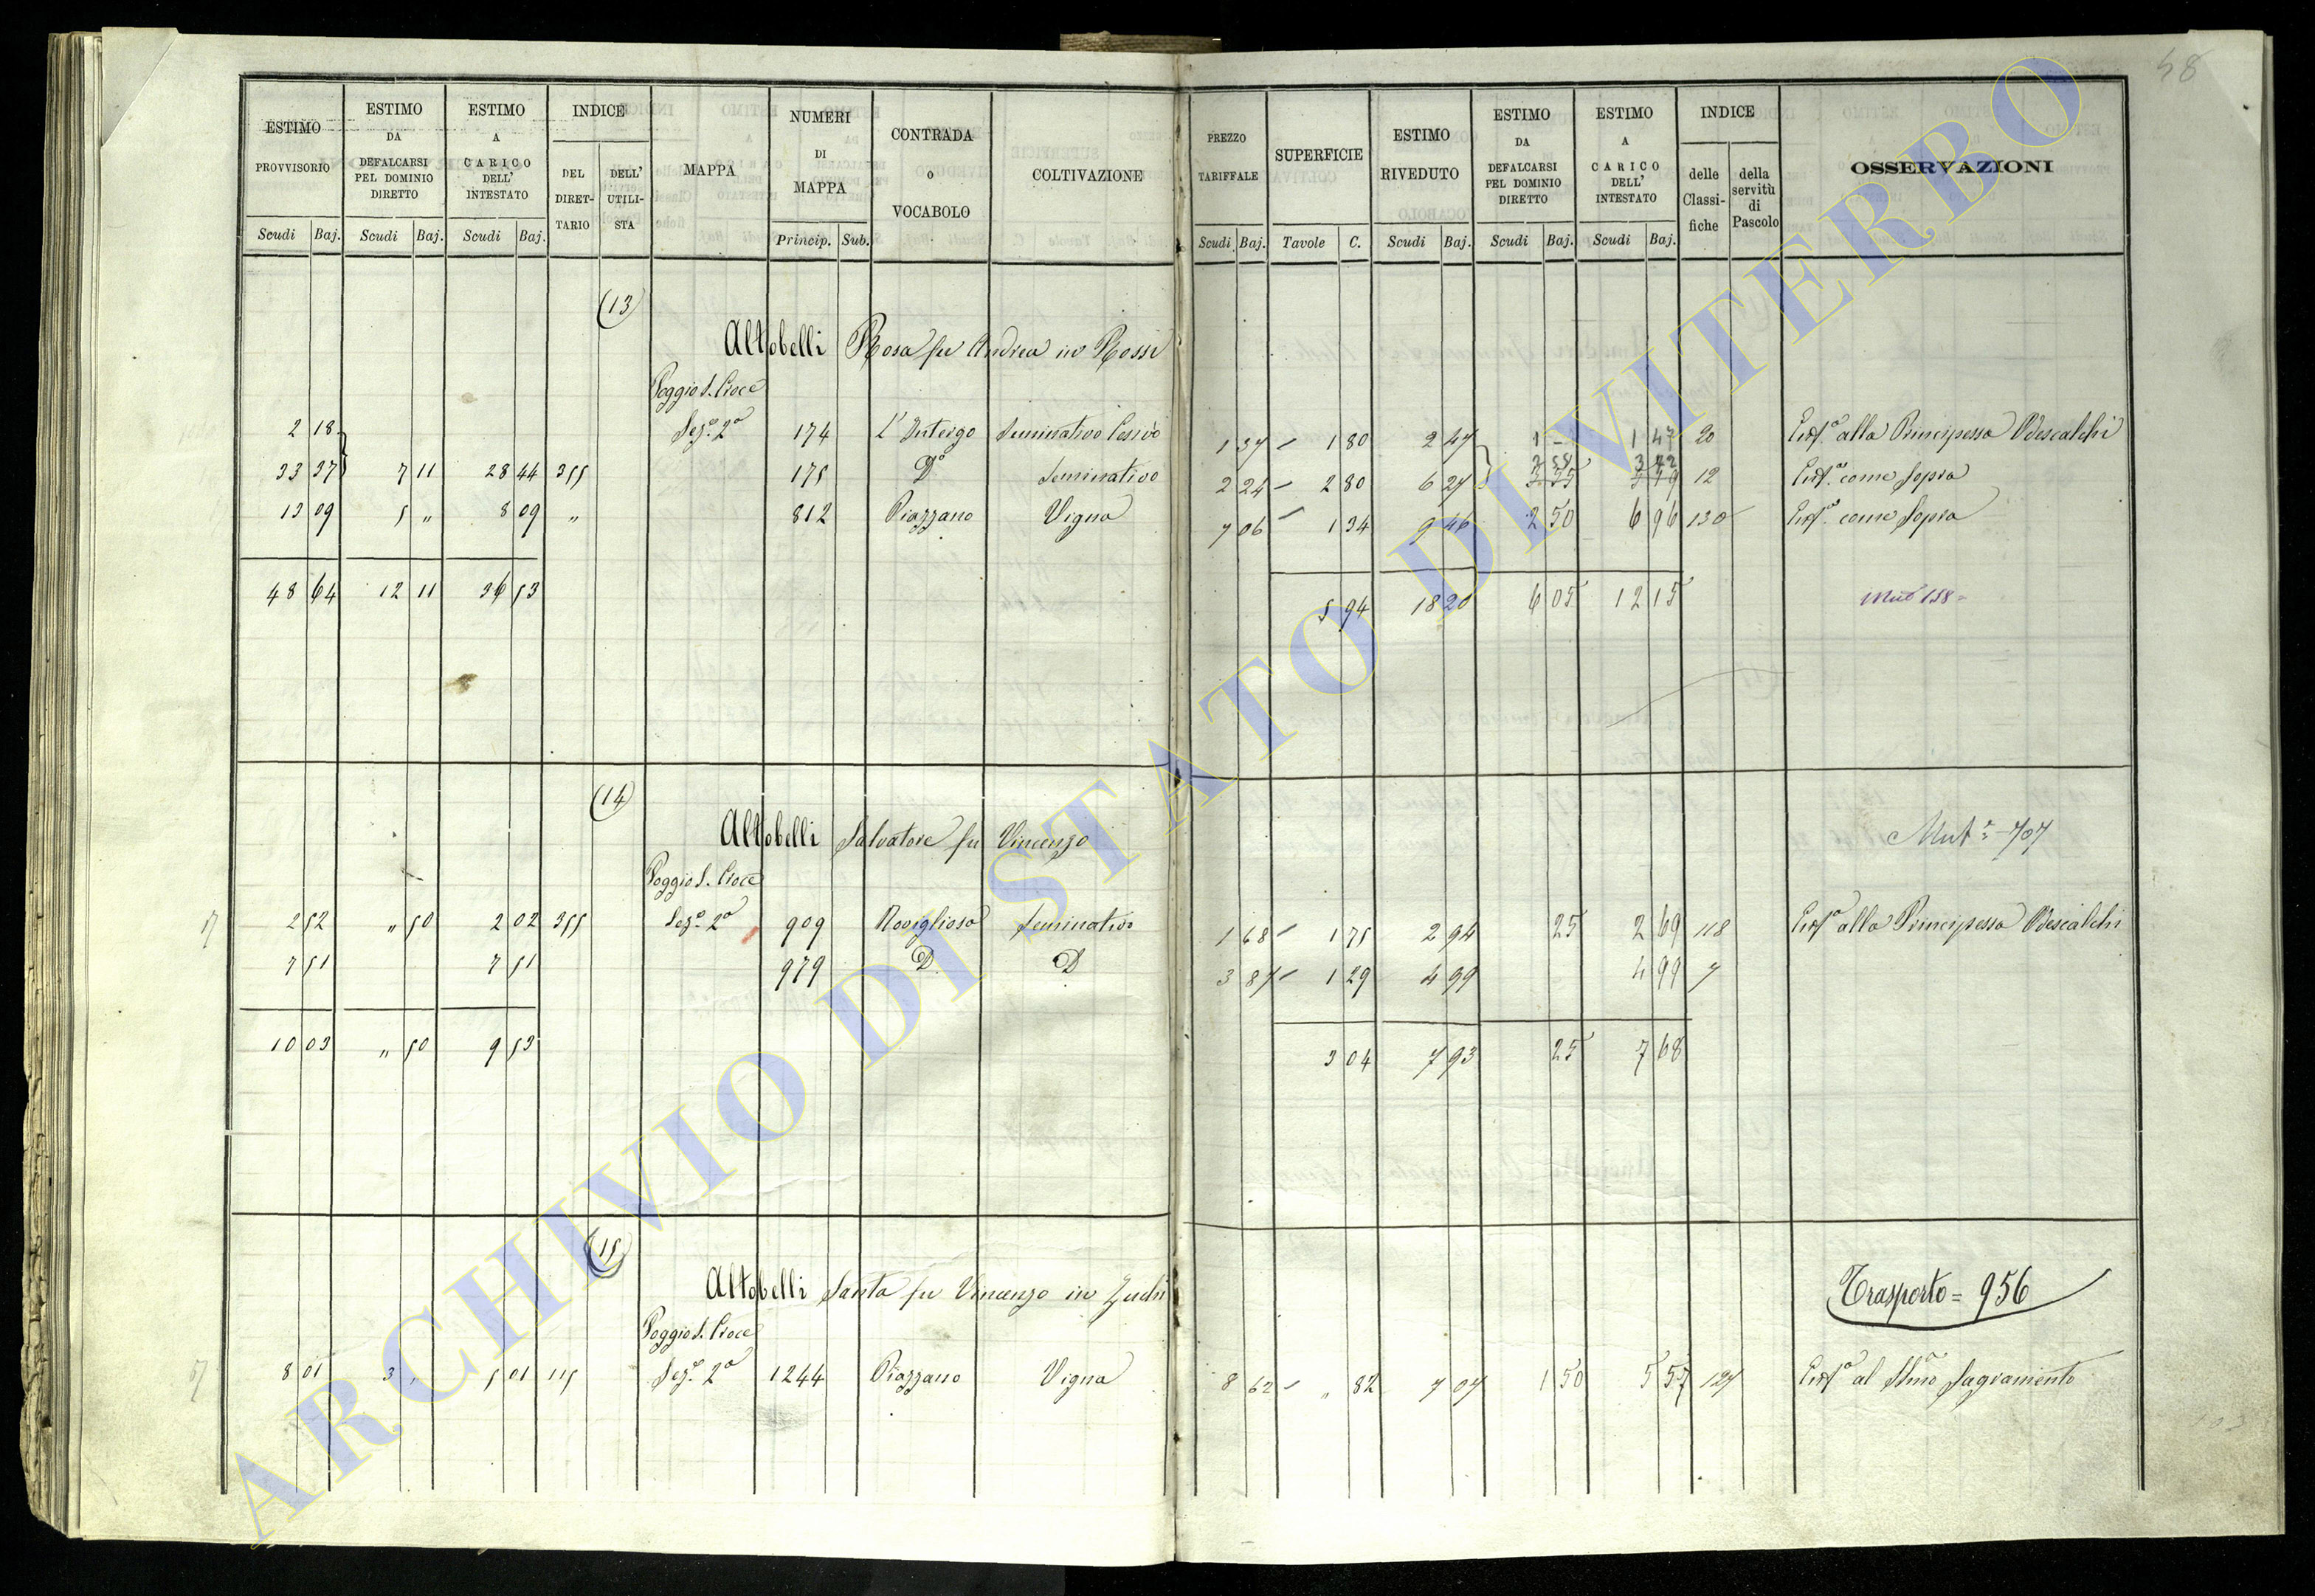 48
ESTIMO PROVVISORIO Scudi Baj.
ESTIMO DA DEFALCARSI PEL DOMINIO DIRETTO Scudi Baj.
ESTIMO A CARICO DELL' INTESTATO Scudi Baj.
INDICE DEL DIRET- TARIO DELL' UTILI- STA
MAPPA
NUMERI DI MAPPA Princip. Sub.
CONTRADA O VOCABOLO
COLTIVAZIONE
PREZZO TARIFFALE Scudi Baj.
SUPERFICIE Tavole C.
ESTIMO RIVEDUTO Scudi Baj.
ESTIMO DA DEFALCARSI PEL DOMINIO DIRETTO Scudi Baj.
ESTIMO A CARICO DELL' INTESTATO Scudi Baj.
INDICE delle Classi- fiche della servitù di Pascolo
OSSERVAZIONI
(13)
Altobelli Rosa fu Andrea in Rossi
Poggio S. Croce
2 18 Sez.e 2a 174 L'Intergo Seminativo 1 37 1 80 2 47 1 – 1 47 20 alla Principessa Odescalchi
2 55 3 72
33 37 7 11 28 44 355 175 Do Seminativo 2 24 2 80 6 27 12 come Sopra
13 09 5 „ 8 09 „ 812 Piazzano Vigna 7 06 1 34 9 46 2 50 6 96 130 come Sopra
48 64 12 11 36 53 5 94 18 20 6 05 12 15 Mut 158
(14)
Altobelli Salvatore fu Vincenzo Mut.e 707
Poggio S. Croce
2 52 „ 50 2 02 355 Sez.e 2a 909 Roviglioso Seminativo 1 68 1 75 2 94 25 2 69 118 alla Principessa Odescalchi
7 51 7 51 979 D. D 3 87 1 29 4 99 4 99 7
10 03 „ 50 9 53 3 04 7 93 25 7 68
(15)
Altobelli Santa fu Vincenzo in Zuchi Trasporto = 956
Poggio S. Croce
8 01 3 , 5 01 115 Sez.e 2a 1244 Piazzano Vigna 8 62 „ 82 7 07 1 50 5 57 127 al SSmo Sagramento
ARCHIVIO DI STATO DI VITERBO